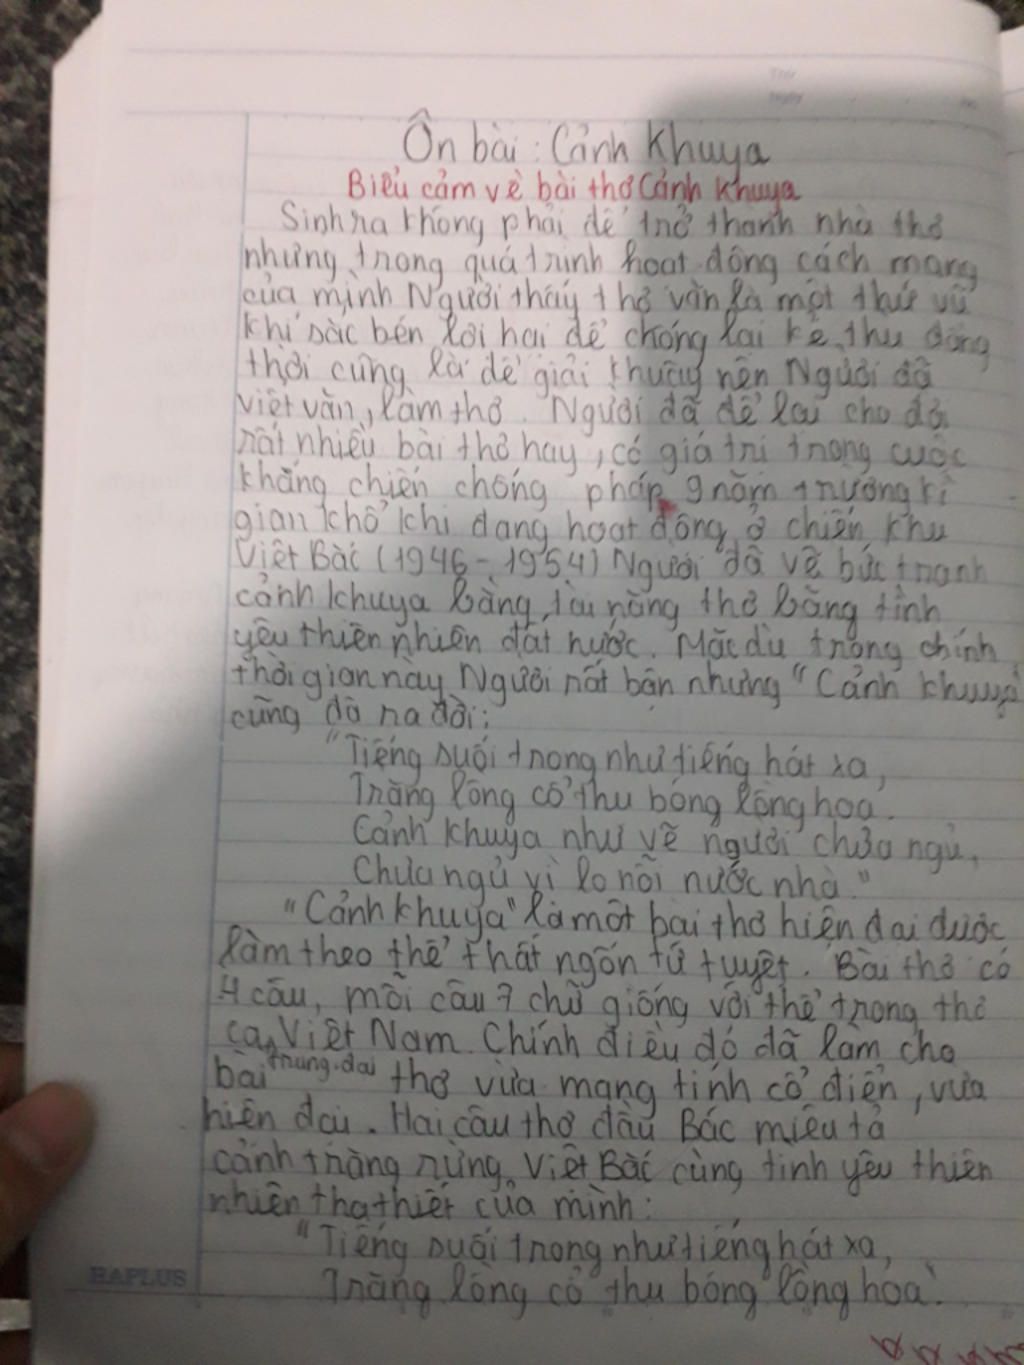 Thứ
Ngày
No
Ôn bài : Cảnh Khuya
Biểu cảm về bài thơ Cảnh Khuya
Sinh ra không phải để trở thành nhà thơ
nhưng trong quá trình hoạt động cách mạng
của mình Người thấy thơ văn là một thứ vũ
khí sắc bén lợi hại để chống lại kẻ thù đồng
thời cũng là để giải khuây nên Người đã
viết văn, làm thơ. Người đã để lại cho đời
rất nhiều bài thơ hay, có giá trị trong cuộc
kháng chiến chống pháp 9 năm trường kì
gian khổ khi đang hoạt động ở chiến khu
Việt Bắc (1946 - 1954) Người đã vẽ bức tranh
cảnh khuya bằng tài năng thơ bằng tình
yêu thiên nhiên đất nước. Mặc dù trong chính
thời gian này Người rất bận nhưng "Cảnh khuya"
cũng đã ra đời:
"Tiếng suối trong như tiếng hát xa,
Trăng lồng cổ thụ bóng lồng hoa.
Cảnh khuya như vẽ người chưa ngủ,
Chưa ngủ vì lo nỗi nước nhà."
"Cảnh khuya" là một bài thơ hiện đại được
làm theo thể thất ngôn tứ tuyệt. Bài thơ có
4 câu, mỗi câu 7 chữ giống với thể trong thơ
ca Việt Nam. Chính điều đó đã làm cho
trung đại
bài thơ vừa mang tính cổ điển, vừa
hiện đại. Hai câu thơ đầu Bác miêu tả
cảnh trăng rừng Việt Bắc cùng tình yêu thiên
nhiên tha thiết của mình:
"Tiếng suối trong như tiếng hát xa,
Trăng lồng cổ thụ bóng lồng hoa".
HAPLUS